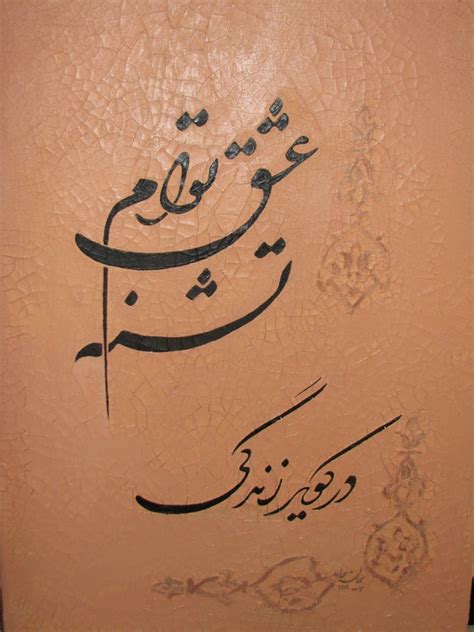 عشق توام
تشنه
در کویر زندگی